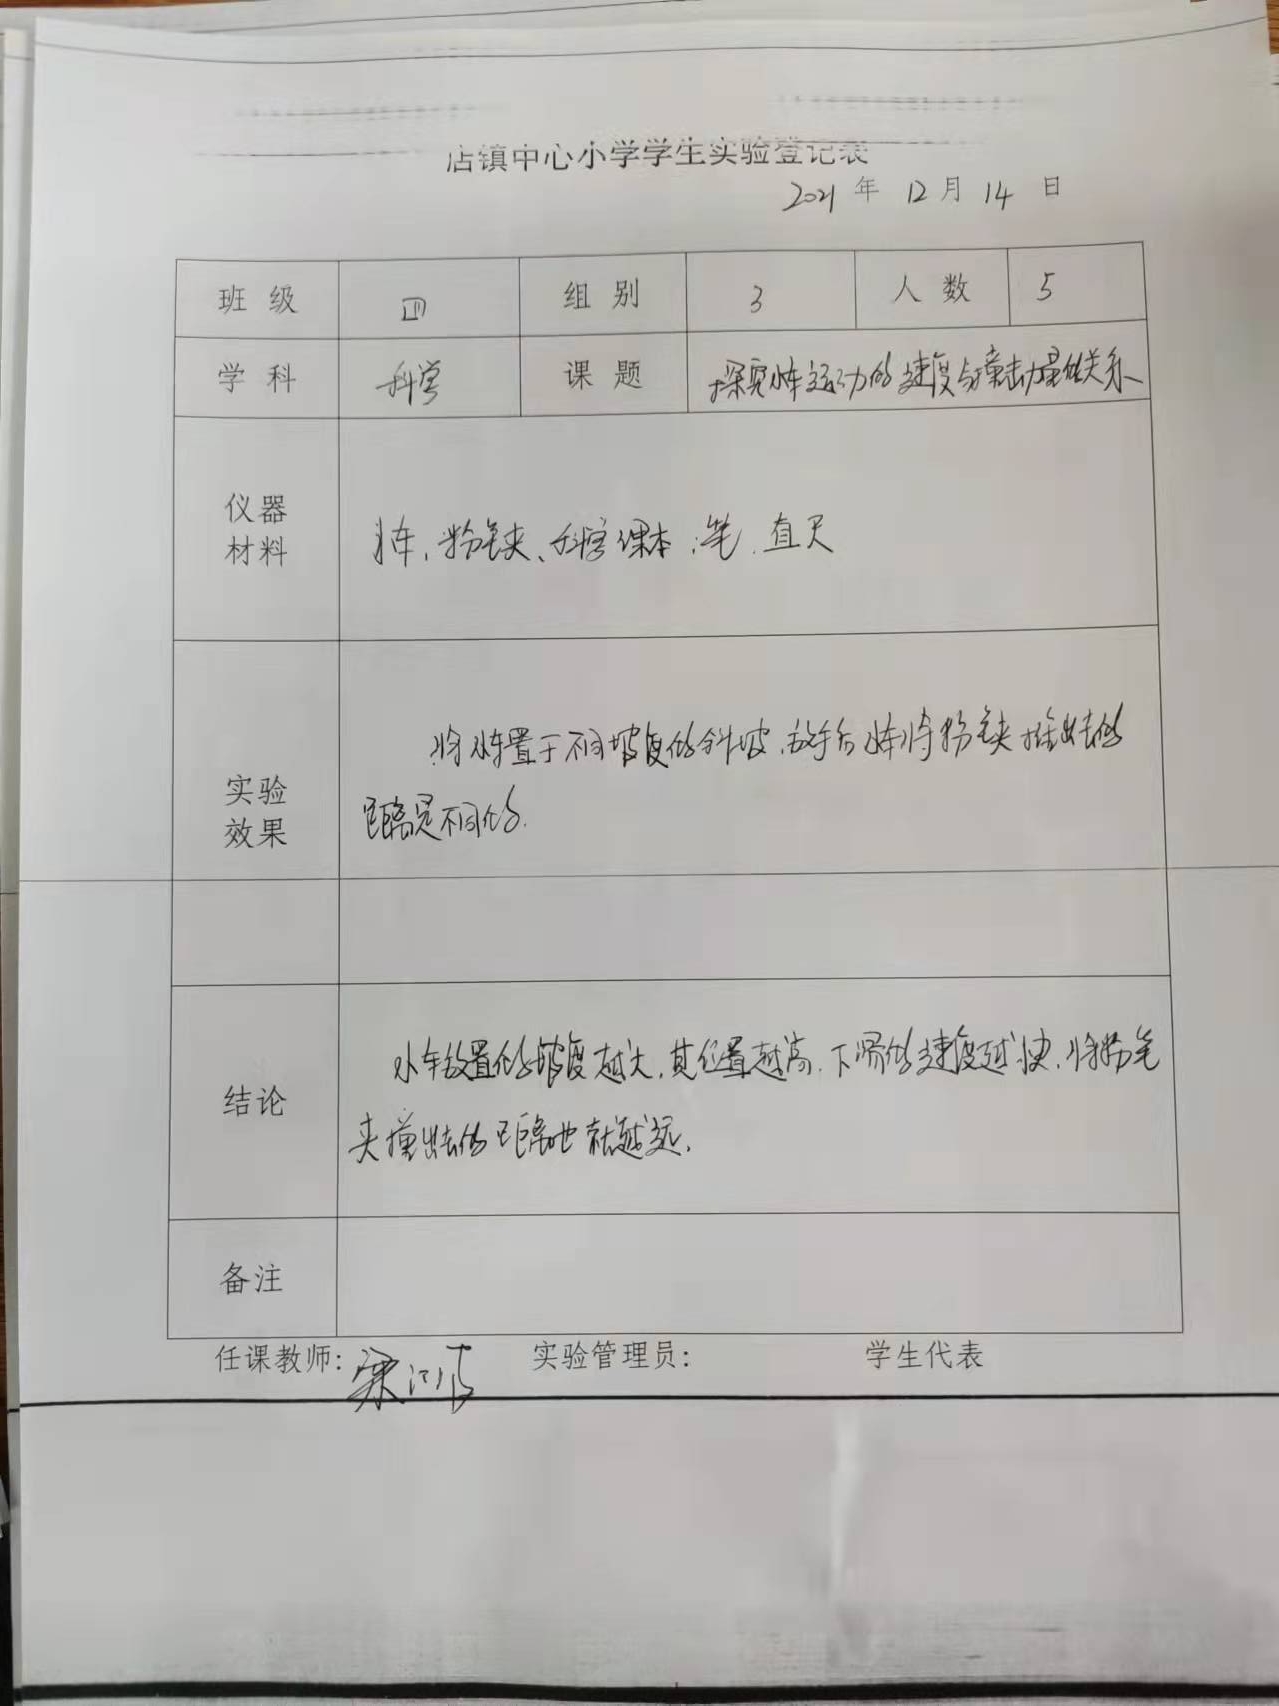 店镇中心小学学生实验登记表
2021 年 12 月 14 日
班级 四 组别 3 人数 5
学科 科学 课题 探究小车运动的速度与撞击力量的关系
仪器
材料
小车、粉笔夹、科学课本、笔、直尺
将小车置于不同坡度的斜坡,放手后小车将粉笔夹推出去的
距离是不同的.
实验
效果
小车放置的坡度越大,其位置越高,下滑的速度越快,将粉笔
夹撞出去的距离也就越远.
结论
备注
任课教师: 梁 实验管理员: 学生代表